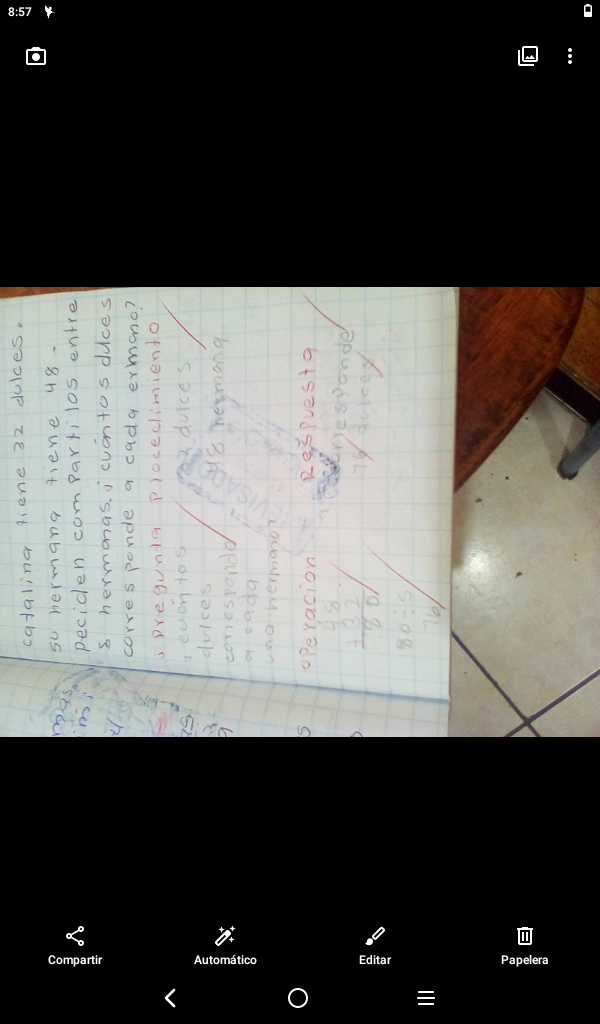 8:57
catalina tiene 32 dulces.
su hermana tiene 48.
Deciden compartilos entre
5 hermanas. ¿ cuántos dulces
corresponde a cada ermano?
¡ Pregunta Procedimiento
¿ cuántos 32 dulces
dulces 48 hermana
corresponde
a cada
uno hermano?
REVISADO
operacion Respuesta
48 corresponde
+ 32 76 dulces
80
80 ÷ 5
76
Compartir
Automático
Editar
Papelera